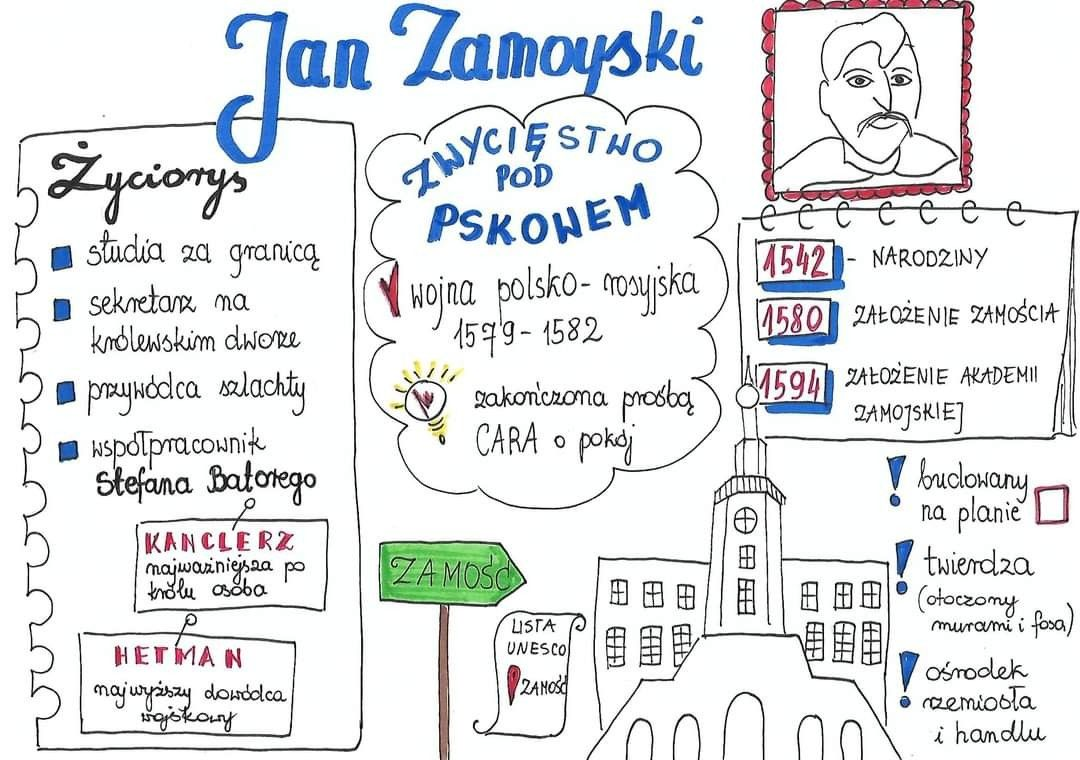 Jan Zamoyski
Życiorys
studia za granicą
sekretarz na
królewskim dworze
przywódca szlachty
współpracownik
Stefana Batorego
KANCLERZ
najważniejsza po
królu osoba
HETMAN
najwyższy dowódca
wojskowy
ZWYCIĘSTWO
POD
PSKOWEM
wojna polsko-rosyjska
1579-1582
zakończona prośbą
CARA o pokój
1542 - NARODZINY
1580 ZAŁOŻENIE ZAMOŚCIA
1594 ZAŁOŻENIE AKADEMII
ZAMOJSKIEJ
ZAMOŚĆ
LISTA
UNESCO
ZAMOŚĆ
! budowany
na planie
! twierdza
(otoczony
murami i fosą)
! ośrodek
rzemiosła
i handlu